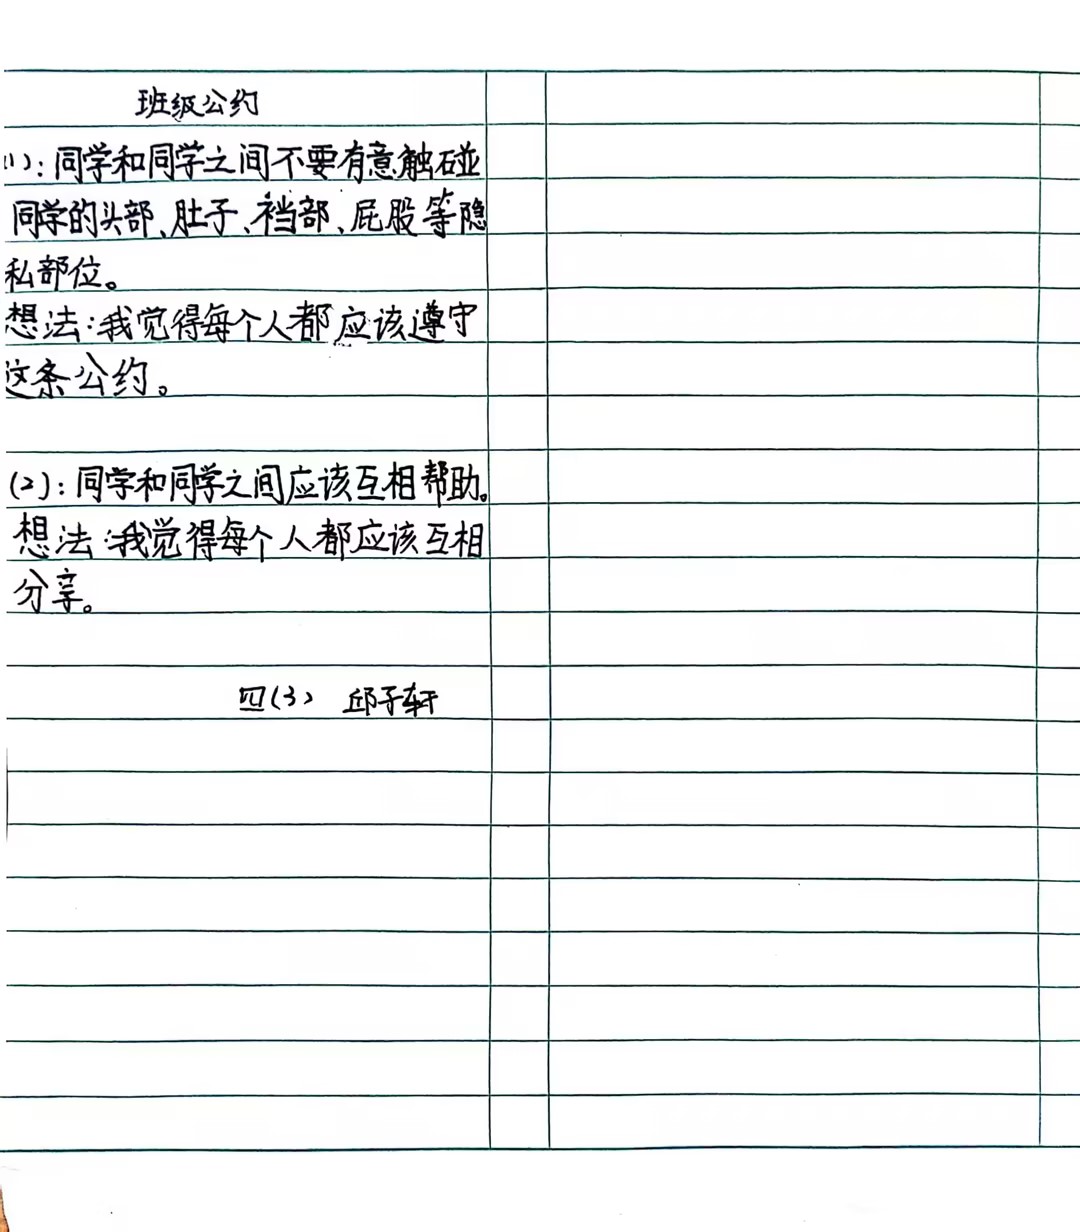 班级公约
(1):同学和同学之间不要有意触碰
同学的头部、肚子、裆部、屁股等隐
私部位。
想法:我觉得每个人都应该遵守
这条公约。
(2):同学和同学之间应该互相帮助。
想法:我觉得每个人都应该互相
分享。
四(3) 邱子轩